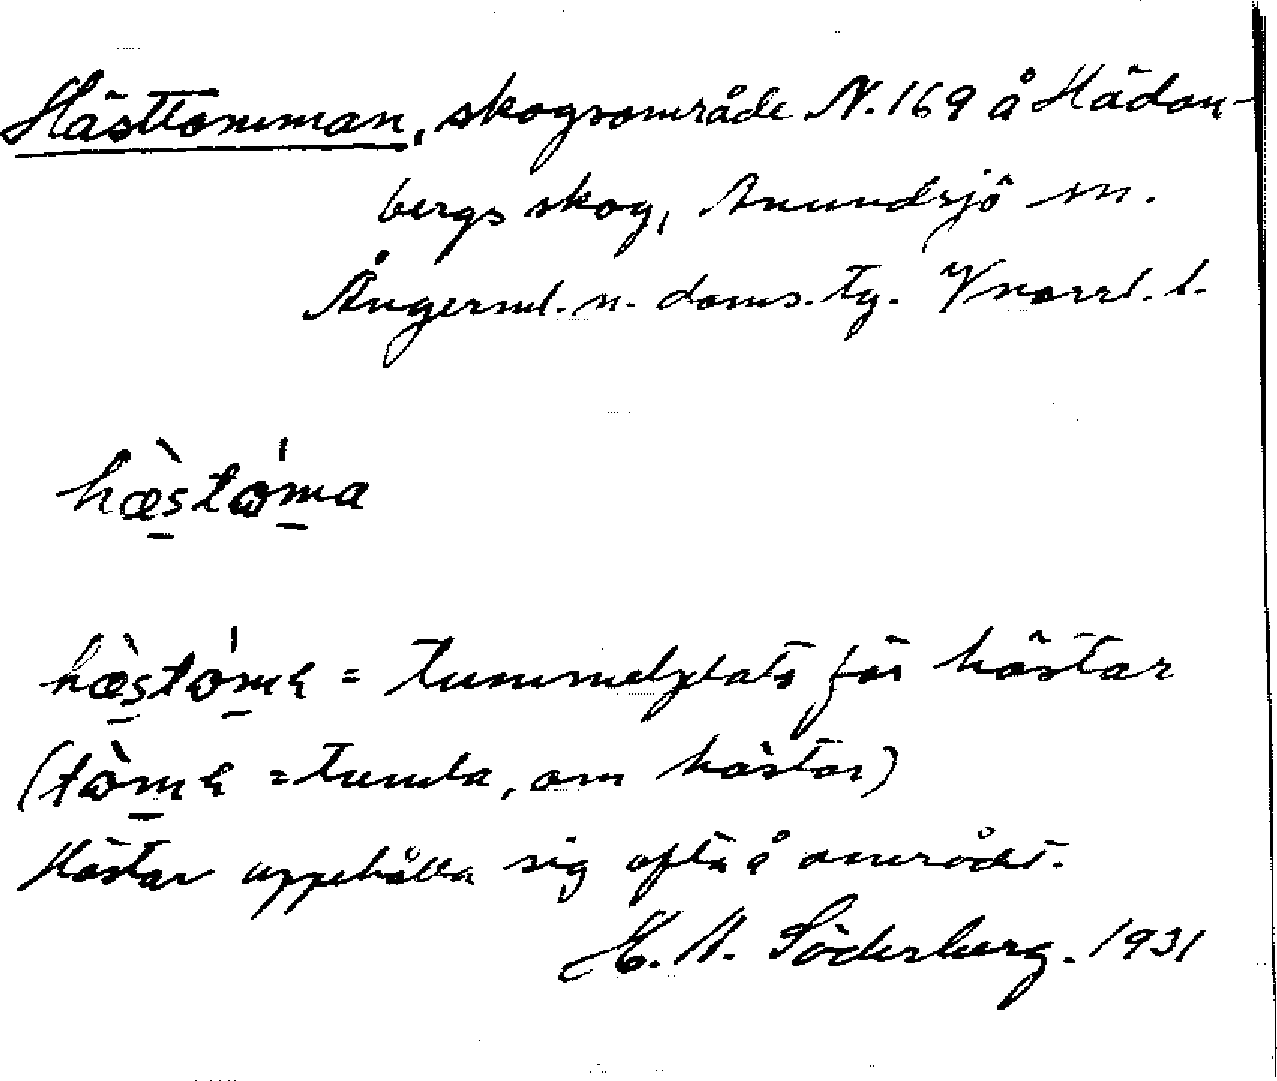 Hästtomman, skogsområde N. 169 å Hädan-
bergs skog, Anundsjö sn.
Ångerml. n. doms. tg. Vnorrl. l.
hæ̀stóma
hæ̀stómɐ = tummelplats för hästar
(tòmɐ = tumla, om hästar)
Hästar uppehålla sig ofta å området.
H. A. Söderberg. 1931